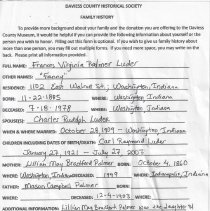 DAVIESS COUNTY HISTORICAL SOCIETY
FAMILY HISTORY
To provide more background about your family and the donation you are offering to the Daviess
County Museum, it would be helpful if you can provide the following information about yourself or the
person you wish to honor. Filling out this form is optional. If you wish to give us family history about
more than one person, you may fill out multiple forms. If you need more space, you may write on the
back. Please print all information provided.
FULL NAME: Frances Virginia Palmer Luder
OTHER NAMES: "Fanny"
RESIDENCE: 1102 East Walnut St; Washington, Indiana
BORN: 11-22-1885 WHERE: Washington, Indiana
DECEASED: 7-18-1978 WHERE: Washington, Indiana
SPOUSES: Charles Rudolph Luder
WHEN & WHERE MARRIED: October 28, 1909 - Washington, Indiana
CHILDREN INCLUDING DATES OF BIRTH/DEATH: Carl Raymond Luder
January 23, 1921 - July 27, 2007
MOTHER: Lillian May Bradford Palmer BORN: October 4, 1860
WHERE: Washington, Indiana DECEASED: 1949 WHERE: Indianapolis, Indiana
FATHER: Mason Campbell Palmer BORN:
WHERE: DECEASED: 12-4-1903 WHERE:
ADDITIONAL INFORMATION: Lillian May Bradford Palmer was the daughter of